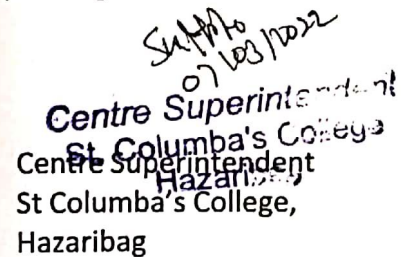 07/03/2022
Centre Superintendent
St. Columba's College
Hazaribag
Centre Superintendent
St Columba's College,
Hazaribag